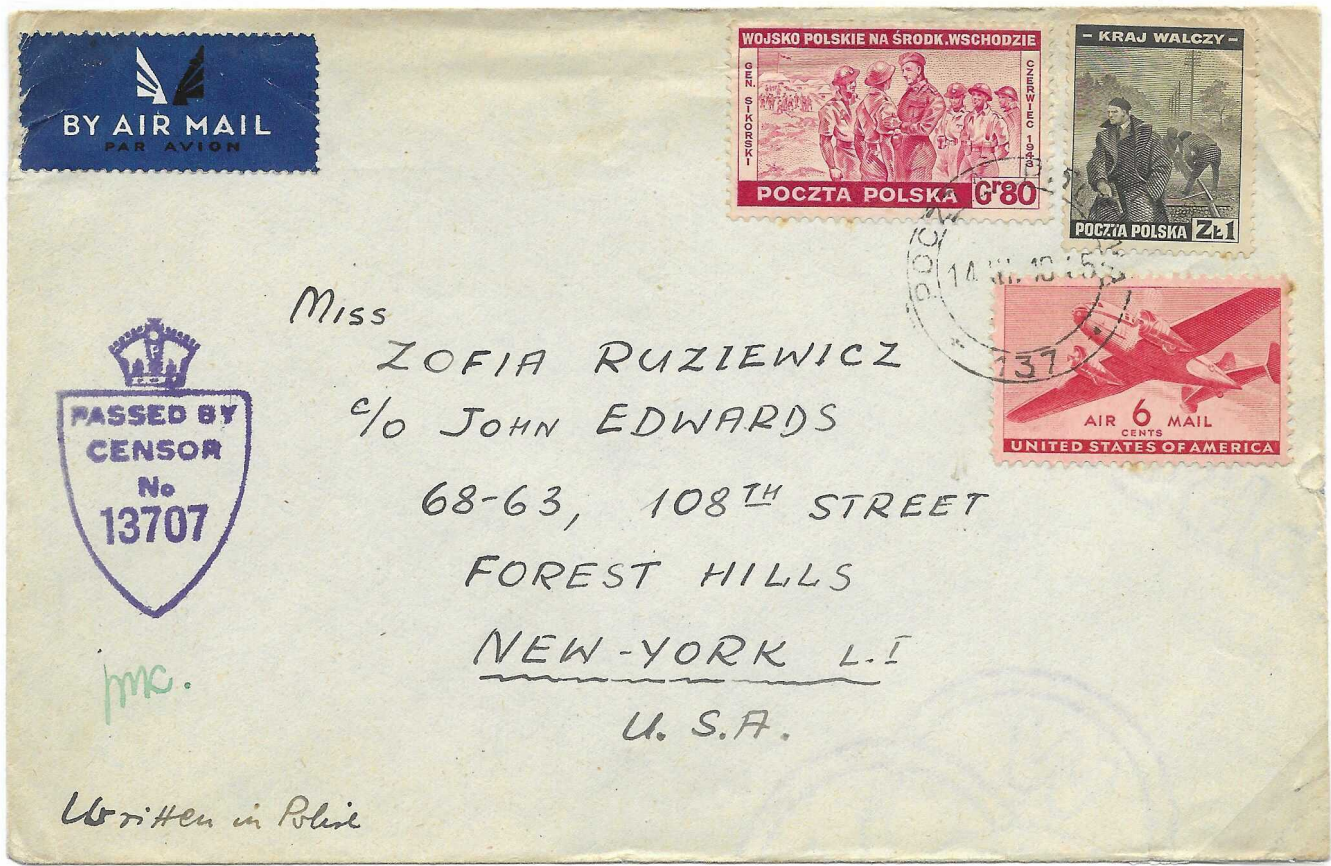 BY AIR MAIL
PAR AVION
WOJSKO POLSKIE NA ŚRODK.WSCHODZIE
GEN. SIKORSKI
CZERWIEC 1943
POCZTA POLSKA Gr80
- KRAJ WALCZY -
POCZTA POLSKA ZŁ1
14
137
AIR 6 MAIL
CENTS
UNITED STATES OF AMERICA
Miss
ZOFIA RUZIEWICZ
c/o JOHN EDWARDS
68-63, 108TH STREET
FOREST HILLS
NEW-YORK L.I
U.S.A.
PASSED BY
CENSOR
No
13707
Written in Polish